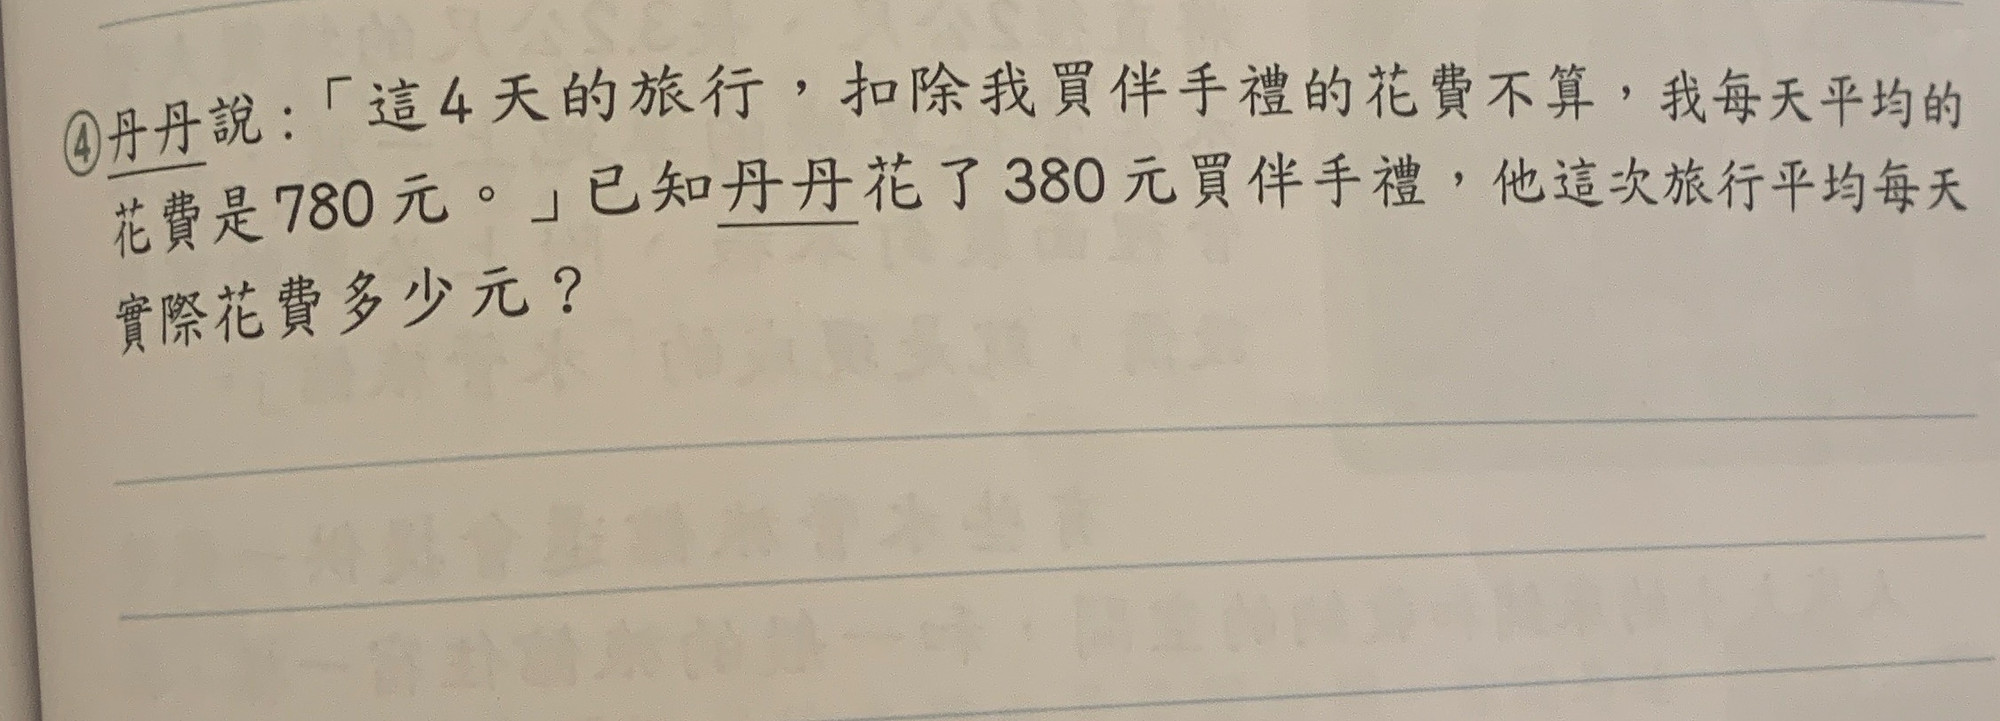 ④丹丹說:「這4天的旅行,扣除我買伴手禮的花費不算,我每天平均的
花費是780元。」已知丹丹花了380元買伴手禮,他這次旅行平均每天
實際花費多少元?